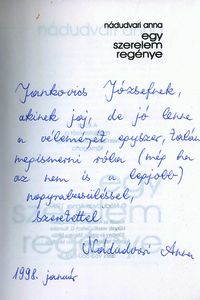 nádudvari anna
egy
szerelem
regénye
Jankovics Józsefnek,
akinek jaj, de jó lenne
a véleményét egyszer, talán
megismerni róla (még ha
az nem is a legjobb)
nagyrabecsüléssel,
szeretettel
Nádudvari Anna
1998. január